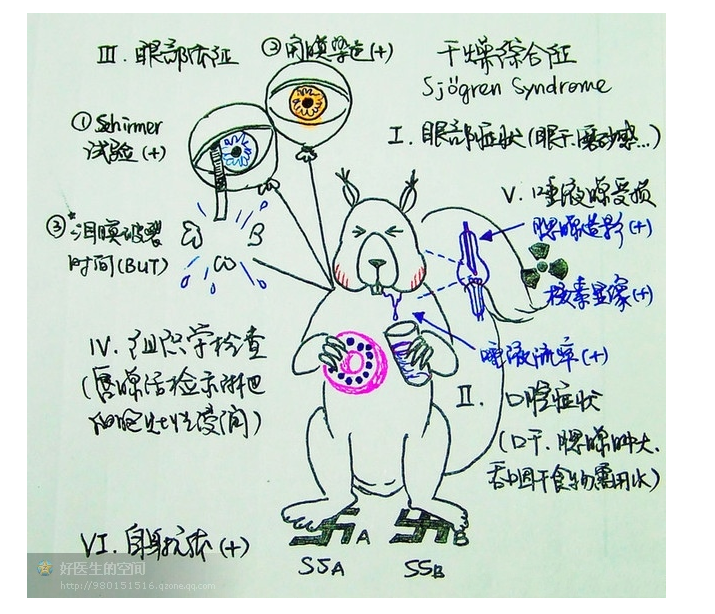 干燥综合征
Sjögren Syndrome
I. 眼部症状(眼干、磨砂感...)
II. 口腔症状
(口干、腮腺肿大、
吞咽干食物需用水)
III. 眼部体征
① Schirmer
试验(+)
② 角膜染色(+)
③* 泪膜破裂
时间(BUT)
IV. 组织学检查
(唇腺活检示淋巴
细胞灶性浸润)
V. 唾液腺受损
腮腺造影(+)
核素显像(+)
唾液流率(+)
VI. 自身抗体(+)
A
B
SSA
SSB
好医生的空间
http://980151516.qzone.qq.com